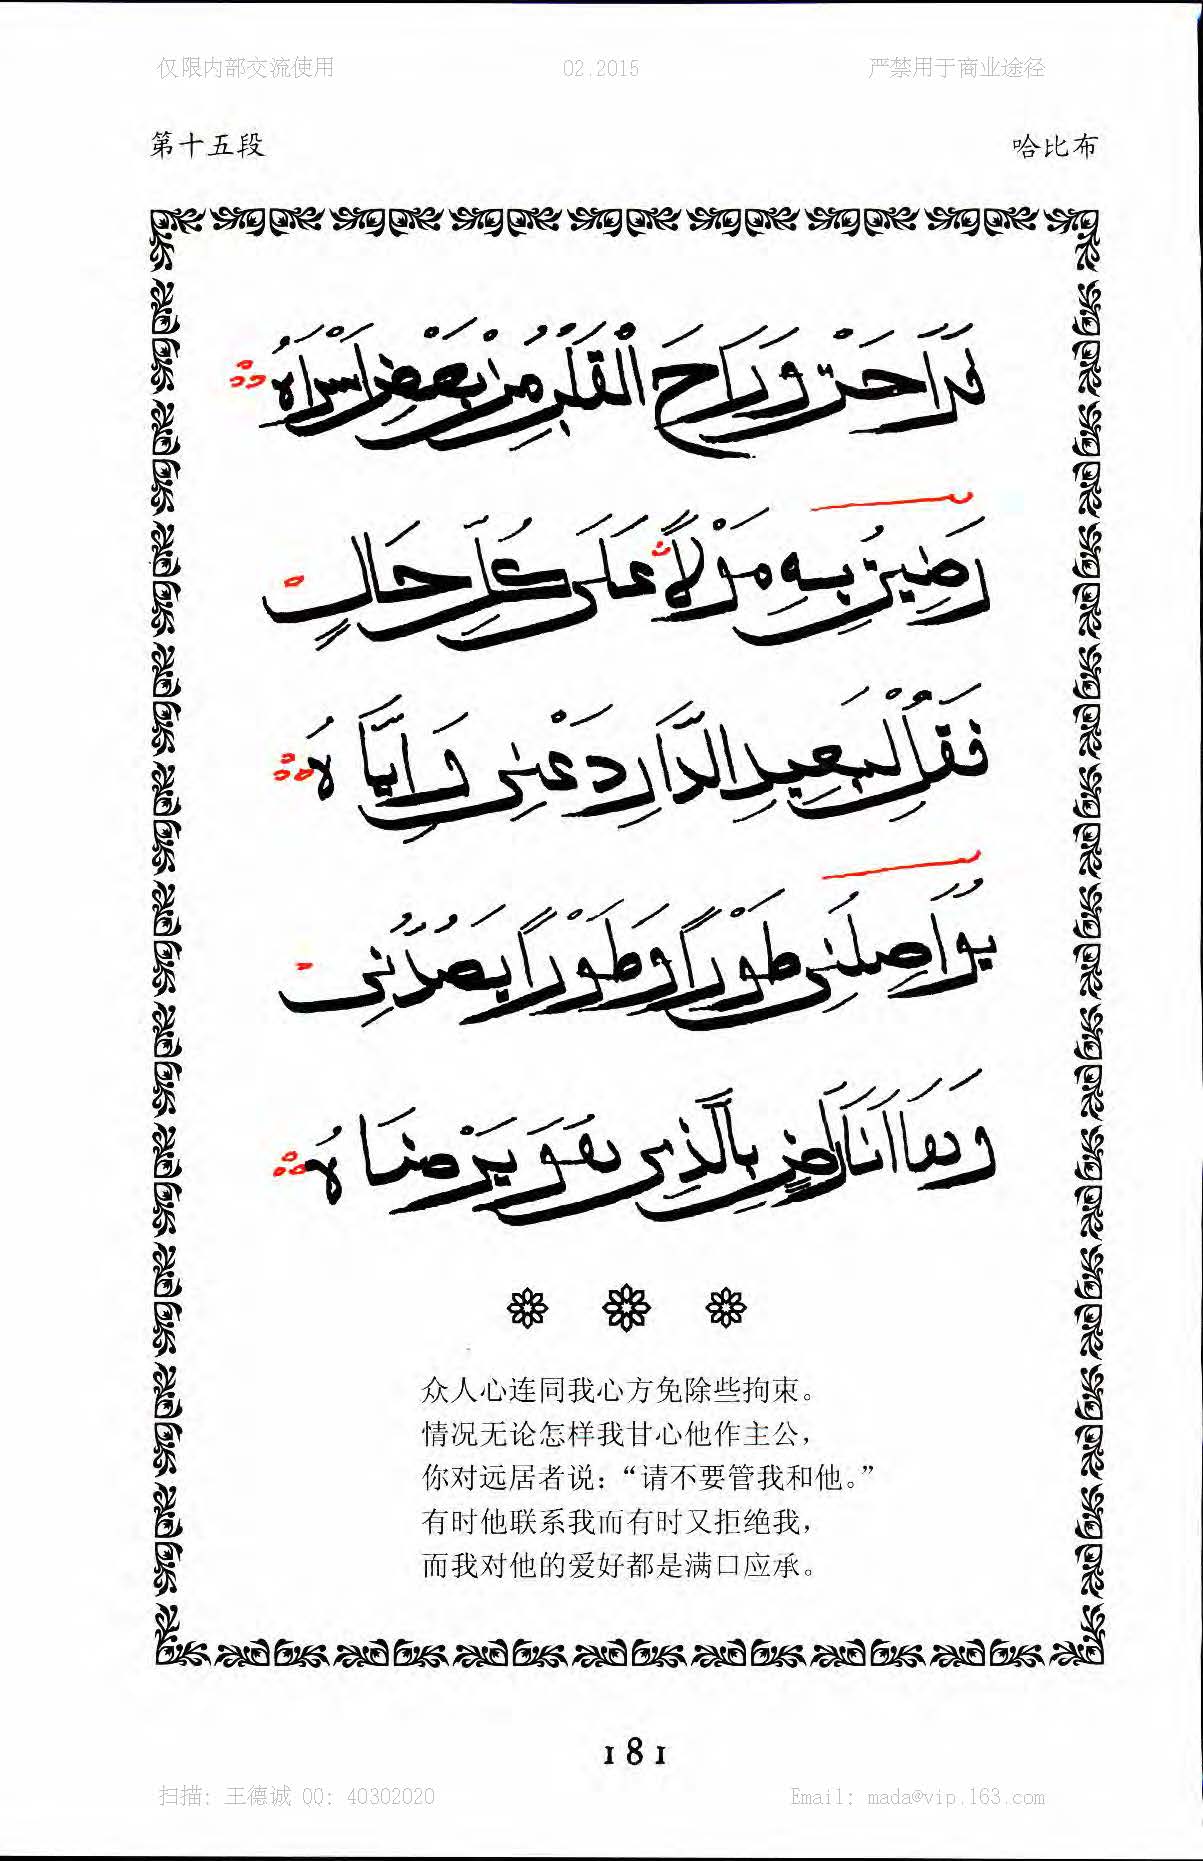 仅限内部交流使用 02.2015 严禁用于商业途径
第十五段 哈比布
فَرَاحَتْ وَرَاحَ الْقَلْبُ مِنْ بَعْضِ اَسْرَاهُ
رَضِيتُ بِهِ مَوْلًا عَلَى كُلِّ حَالٍ
فَقُلْ لِبَعِيدِ الدَّارِ دَعْنِى وَاِيَّاهُ
يُوَاصِلُنِى طَوْرًا وَطَوْرًا يَصُدُّنِى
وَهَا اَنَا رَاضٍ بِالَّذِى هُوَ يَرْضَاهُ
众人心连同我心方免除些拘束。
情况无论怎样我甘心他作主公，
你对远居者说：“请不要管我和他。”
有时他联系我而有时又拒绝我，
而我对他的爱好都是满口应承。
181
扫描: 王德诚 QQ: 40302020 Email: mada@vip.163.com